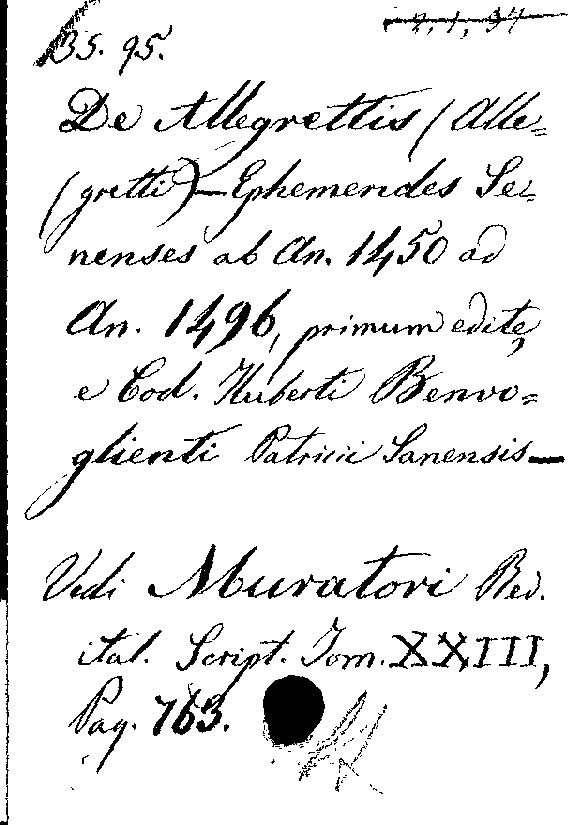 2, 1, 34
B5. 95.
De Allegrettis (Alle=
(gretti) — Ephemerides Se=
nenses ab An. 1450 ad
An. 1496, primum editę
e Cod. Huberti Benvo=
glienti Patricii Sanensis —
Vedi Muratori Rer.
ital. Script. Tom. XXIII,
Pag. 763.